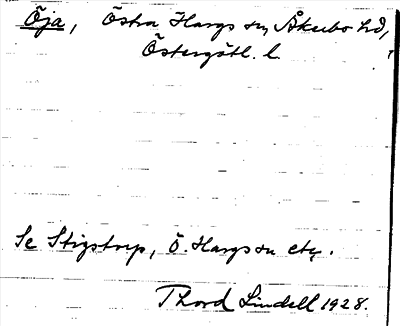 Öja, Östra Hargs sn, Åkerbo hd,
Östergötl. l.
Se Stigstorp, Ö. Hargs sn ety.
Thord Lindell 1928.